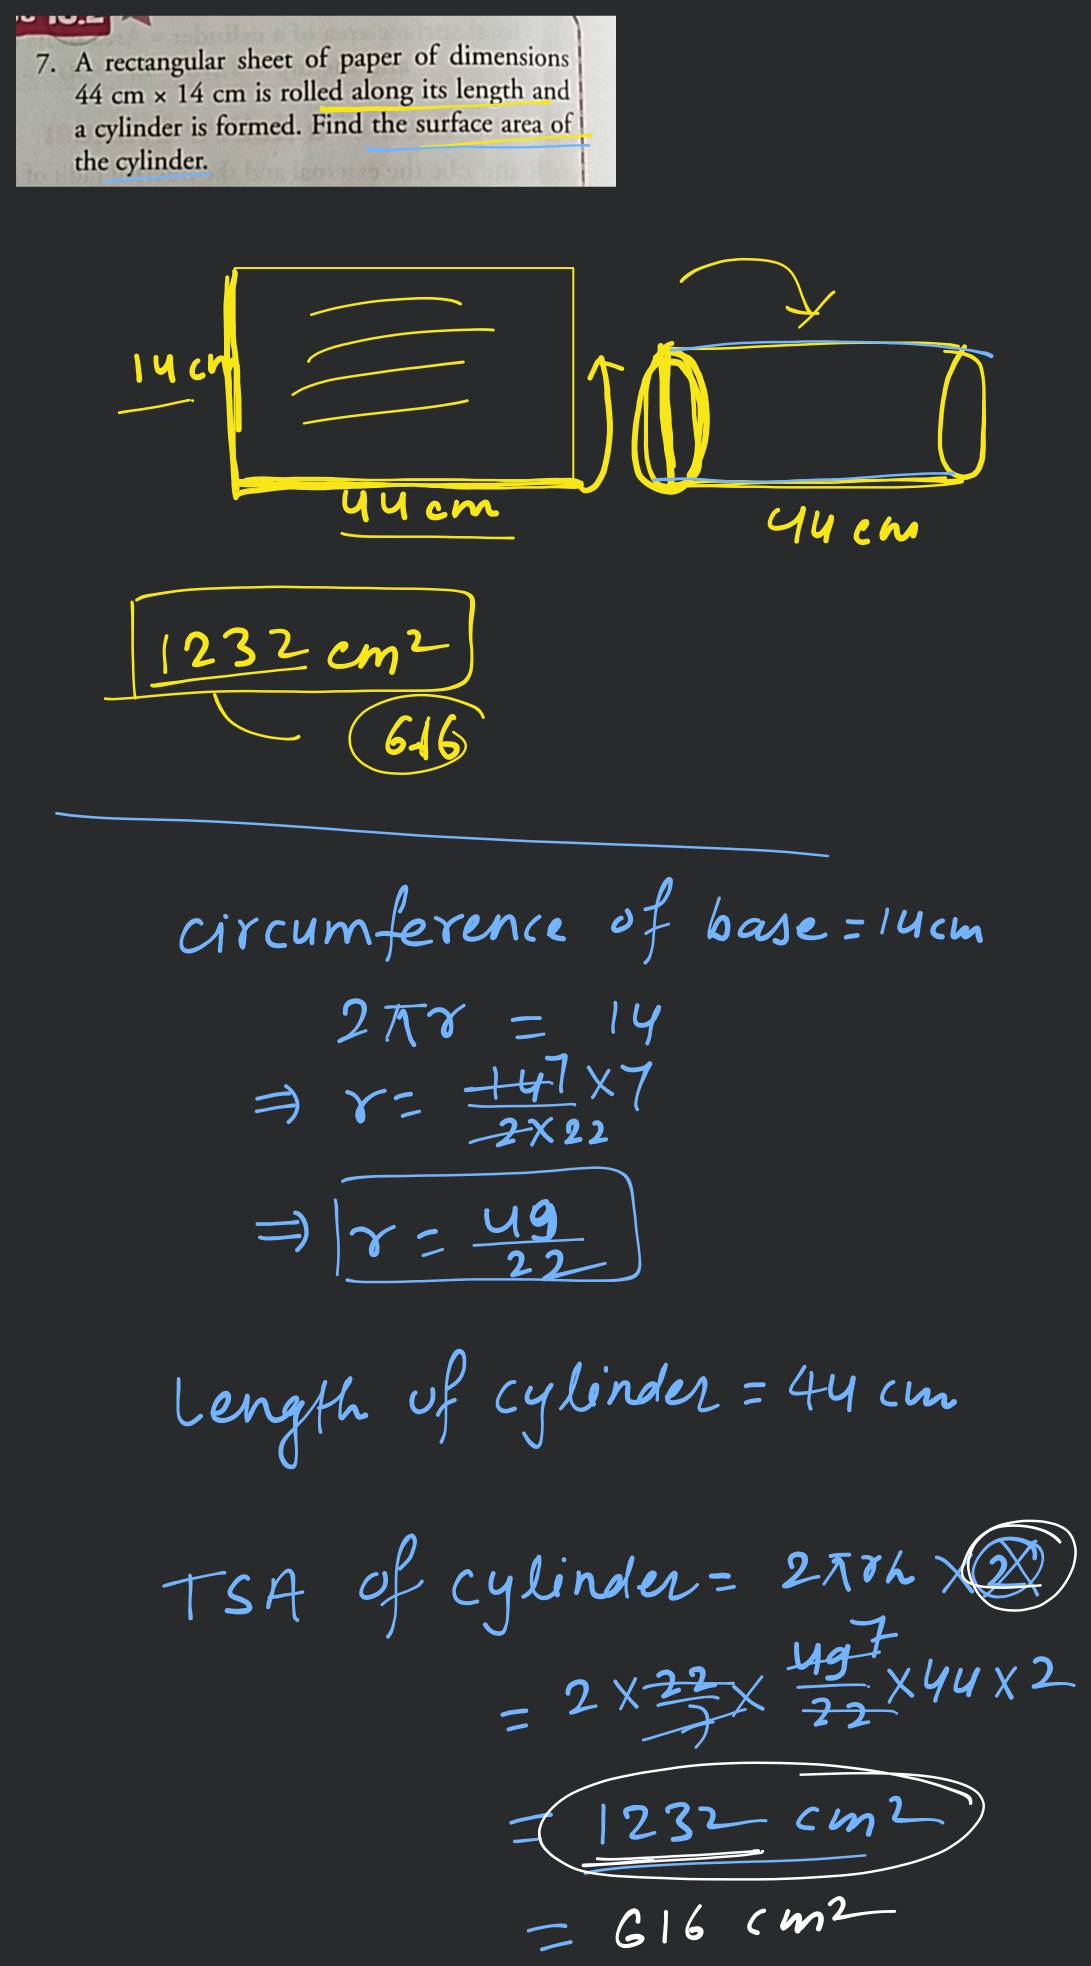 7. A rectangular sheet of paper of dimensions
44 cm × 14 cm is rolled along its length and
a cylinder is formed. Find the surface area of
the cylinder.
14 cm
44 cm
44 cm
1232 cm²
616
circumference of base = 14cm
2πr = 14
⇒ r = 14 7 × 7 / 2 × 22
⇒ r = 49 / 22
Length of cylinder = 44 cm
TSA of cylinder = 2πrh × 2
= 2 × 22/7 × 49 7 / 22 × 44 × 2
= 1232 cm²
= 616 cm²